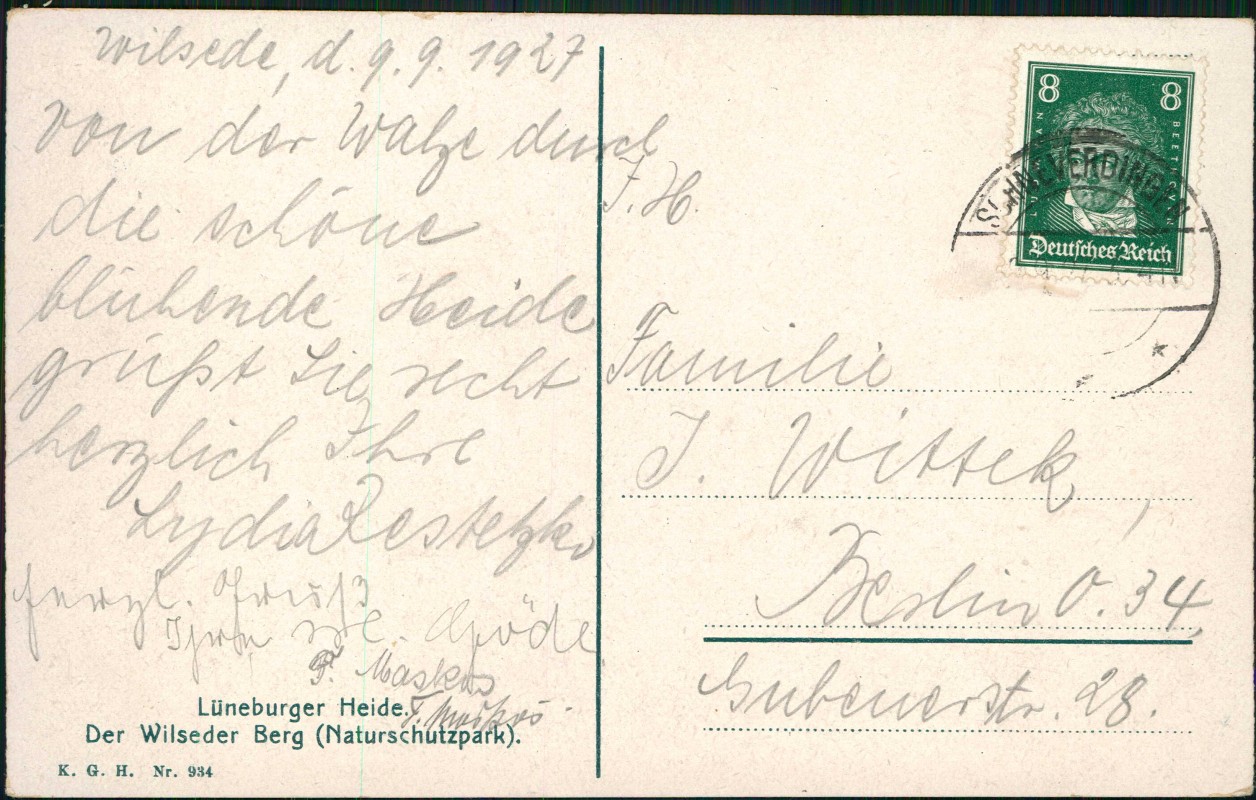 Wilsede, d. 9. 9. 1927
Von der Walze durch
die schöne
blühende Heide
grüßt Sie recht
herzlich Ihre
Lydia Restetzki
herzl. Gruß
Ihre
F. Maskos
F. Maskos
Lüneburger Heide.
Der Wilseder Berg (Naturschutzpark).
K. G. H. Nr. 934
8 8
LUDWIG VAN BEETHOVEN
Deutsches Reich
SCHNEVERDINGEN
F. H.
Familie
J. Wittek,
Berlin O. 34,
Gubenerstr. 28.